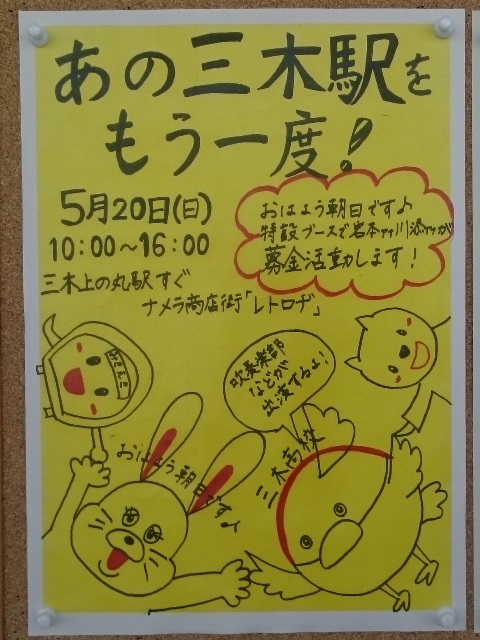 あの三木駅を
もう一度!
5月20日(日)
10:00〜16:00
三木上の丸駅すぐ
ナメラ商店街「レトロヂ」
おはよう朝日ですよ
特設ブースで岩本アナ川添アナが
募金活動します!
吹奏楽部
などが
出演するよ!
三木高校
おはよう朝日ですよ